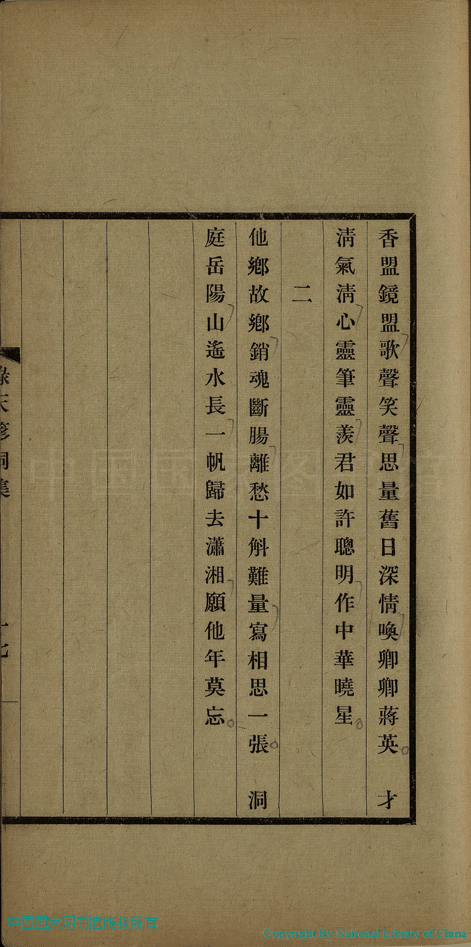 香盟鏡盟歌聲笑聲思量舊日深情喚卿卿蔣英 才
淸氣淸心靈筆靈羨君如許聰明作中華曉星
二
他鄉故鄉銷魂斷腸離愁十斛難量寫相思一張 洞
庭岳陽山遙水長一帆歸去瀟湘願他年莫忘
中国国家图书馆版权所有
Copyright By National Library of China